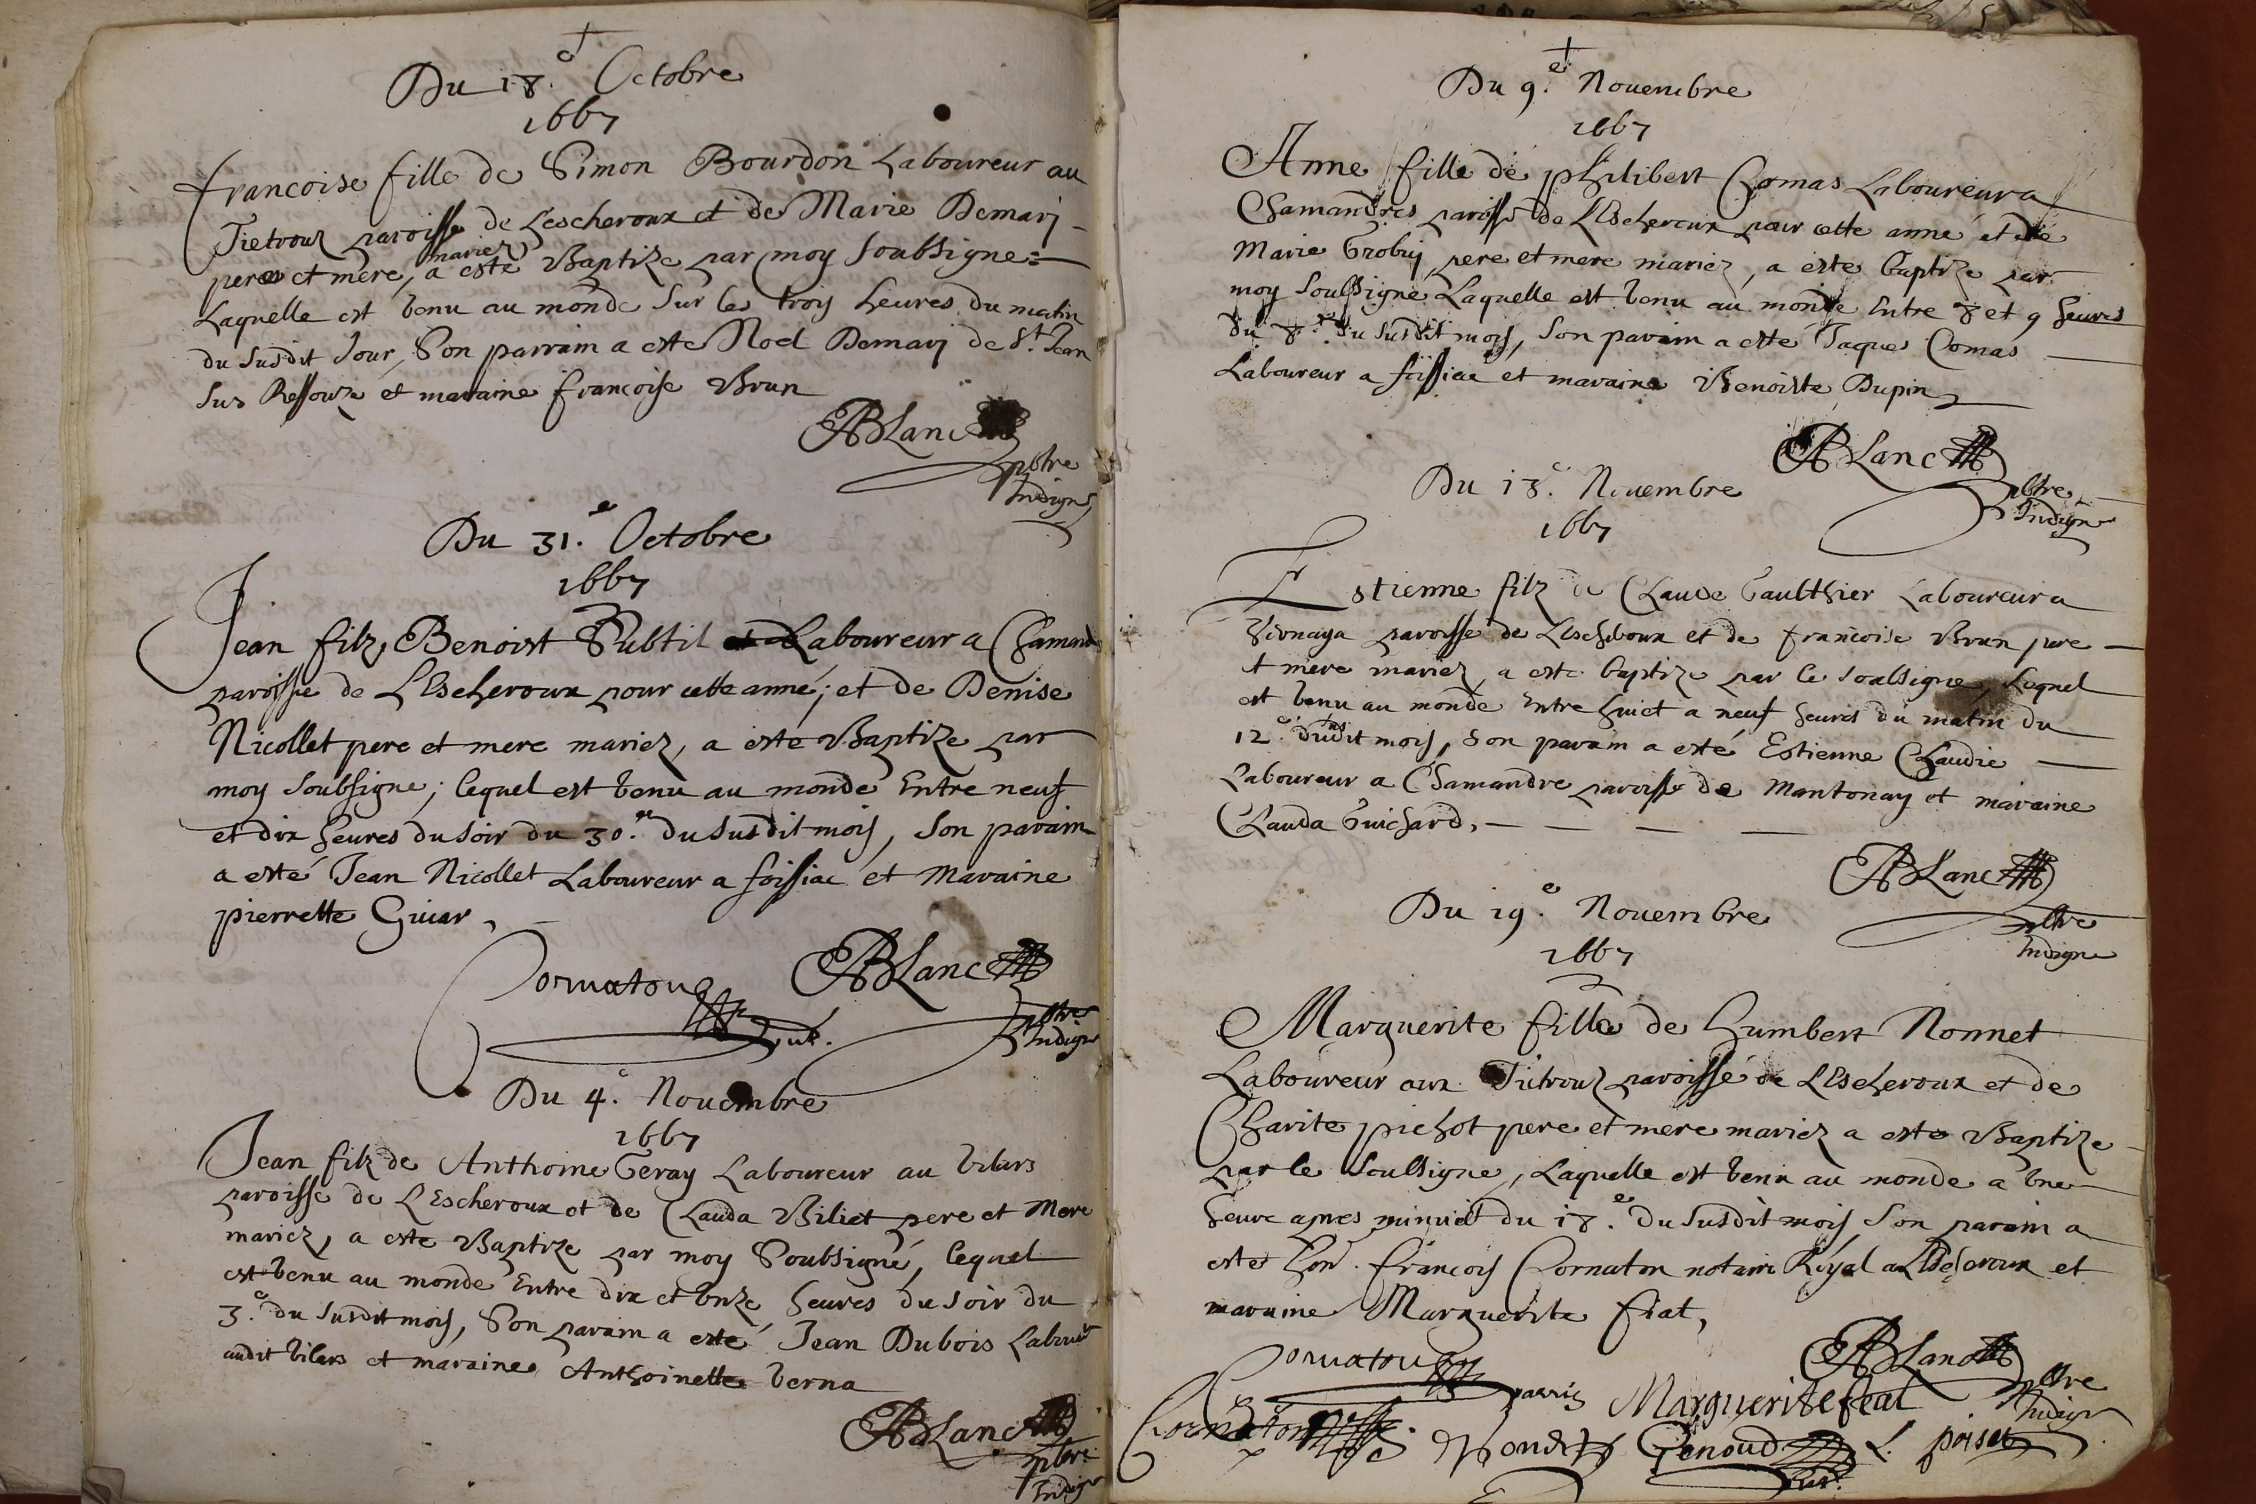 Du 18.e Octobre
1667
Francoise fille de Simon Bourdon Laboureur au
Tietrouz paroisse de Lescheroux et de Marie Demarj
peres et mere, mariez a esté Baptize par moy soubsigne
Laquelle est venu au monde sur les trois heures du matin
du susdit Jour, Son parrain a esté Noel Demarj de St Jean
sus Ressouze et maraine francoise Brun
ABLanc
pbtre
Indigne
Du 31.e Octobre
1667
Jean filz Benoist Subtil Laboureur a Chamand
paroisse de LEscheroux pour cette anné; et de Denise
Nicollet pere et mere mariez, a esté Baptize par
moy soubsigne; lequel est venu au monde Entre neuf
et dix heures du soir du 30.e du susdit mois, son parain
a esté Jean Nicollet Laboureur a foissiac et Maraine
pierrette Guiar,
Cornaton ABLanc
pbtre
Indigne
Du 4.e Nouembre
1667
Jean filz de Anthoine Geray Laboureur au vilars
paroisse de LEscheroux et de Clauda Biliet pere et Mere
mariez, a esté Baptize par moy Soubsigné, lequel
est venu au monde Entre dix et unze heures du soir du
3.e du susdit mois, Son parain a esté Jean Dubois Labour
audit vilars et maraine Anthoinette verna
ABLanc
pbtre
Indigne
Du 9.e Nouembre
1667
Anne fille de philibert Comas Laboureur a
Chamandres paroisse de LEscheroux pour cette anné et de
Marie Grobuj, pere et mere mariez, a esté baptize par
moy soubsigné Laquelle est venu au monde Entre 8 et 9 heures
du 8.e du susdit mois, son parain a esté Jaques Comas
Laboureur a foissiac et maraine Benoiste Dupin
ABLanc
pbtre
Indigne
Du 13.e Nouembre
1667
Estienne filz de Claude Gaulthier Laboureur a
paroisse de LEscheroux et de francoise Brun pere
et mere mariez, a esté baptize par le soubsigne, Lequel
est venu au monde Entre huict a neuf heures du matin du
12.e dudit mois, son parain a esté Estienne Claudie
Laboureur a Chamandre paroisse de Mantonay et maraine
Clauda Guichard,
ABLanc
pbtre
Indigne
Du 19.e Nouembre
1667
Marguerite fille de humbert Nonnet
Laboureur aux Tietrouz paroisse de LEscheroux et de
Charite pichot pere et mere mariez a esté Baptize
par le soubsigne, Laquelle est venu au monde a une
heure apres minuict du 18.e du susdit mois son parain a
esté hon. francois Cornaton notaire Royal a LEscheroux et
maraine Marguerite fiat,
ABLanc
pbtre
Indigne
Cornaton parrin Marguerite feat
Cornaton Genoud L. poisat